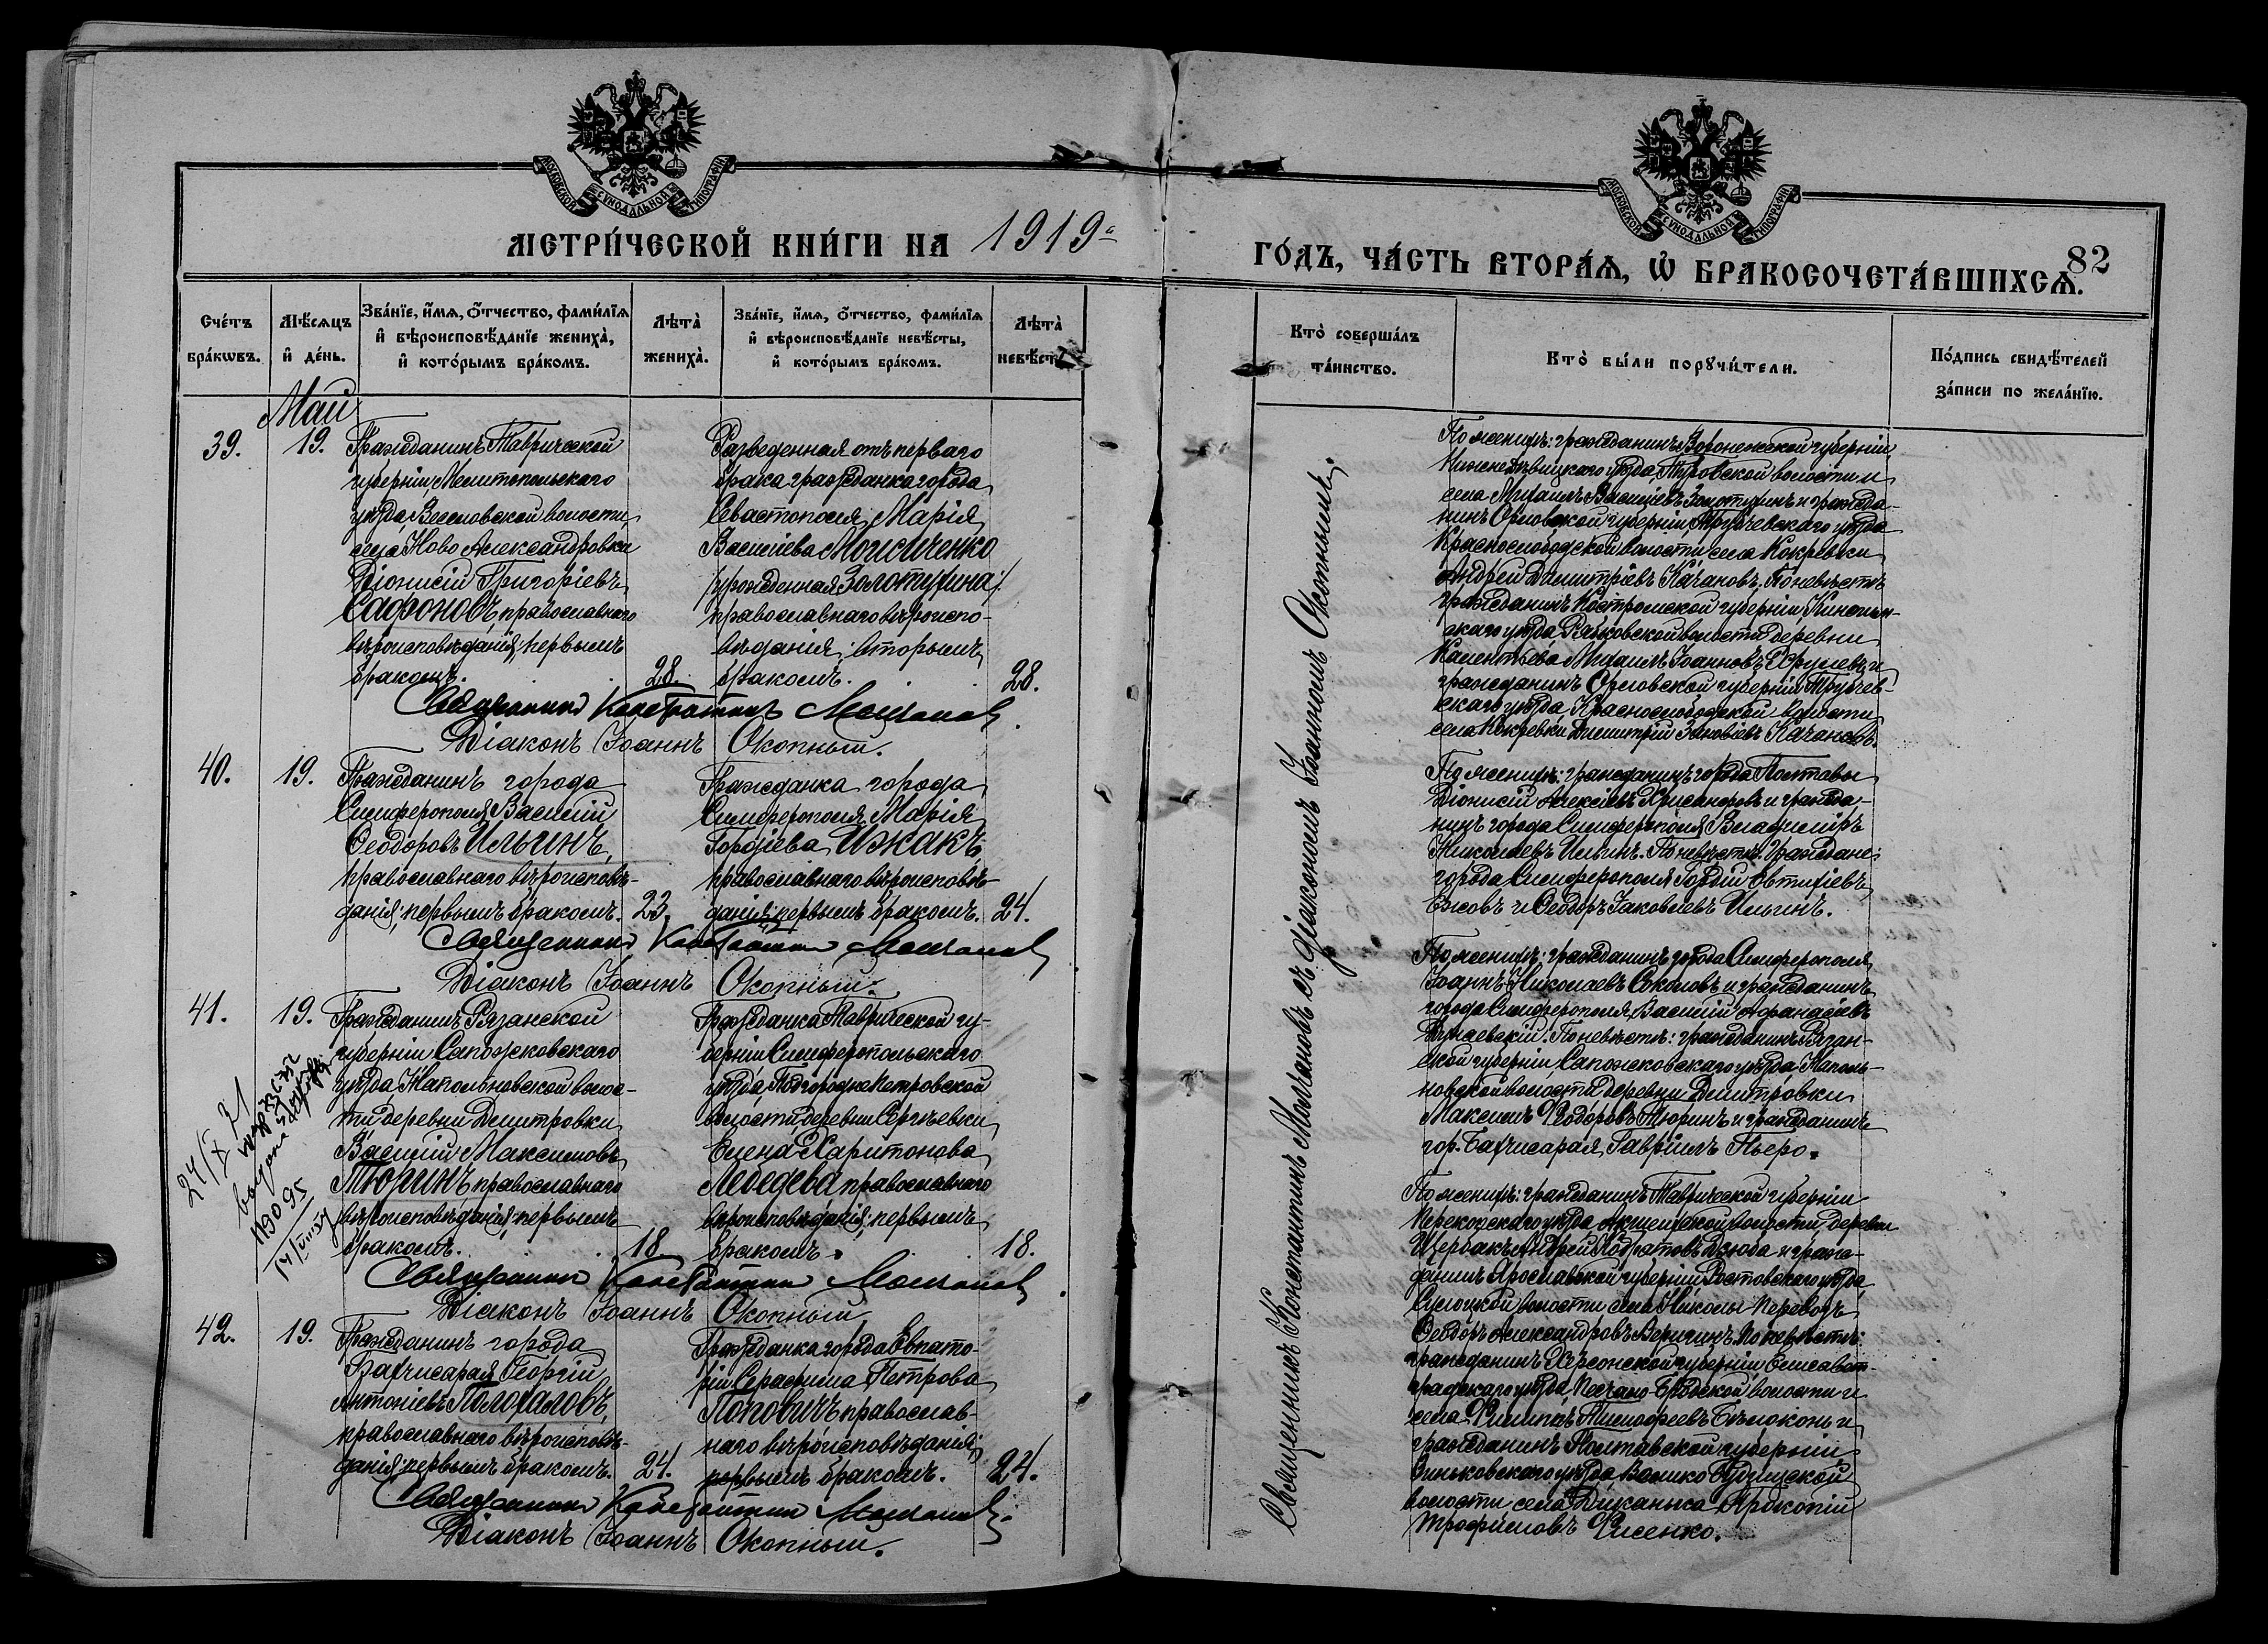 МОСКОВСКОЙ СѴНОДАЛЬНОЙ ТИПОГРАФІИ
МЕТРИ́ЧЕСКОЙ КНИ́ГИ НА 1919 г.
Сче́тъ бра́кωвъ.
Мѣ́сяцъ и҆ де́нь.
Зва́нїе, и҆́мѧ, ѻ҆́тчество, фами́лїѧ и҆ вѣроисповѣ́данїе жениха̀, и҆ кото́рымъ бра́комъ.
Лѣта̀ жениха̀.
Зва́нїе, и҆́мѧ, ѻ҆́тчество, фами́лїѧ и҆ вѣроисповѣ́данїе невѣ́сты, и҆ кото́рымъ бра́комъ.
Лѣта̀ невѣ́сты.
Май
39.
19.
Гражданинъ Таврической
губерніи, Мелитопольскаго
уѣзда, Веселовской волости,
села Ново Александровки
Діонисій Григоріевъ
Сафоновъ, православнаго
вѣроисповѣданія; первымъ
бракомъ.
28.
Разведенная отъ перваго
брака гражданка города
Севастополя, Марія
Василіева Моисиченко
/урожденная Золотухина/
православнаго вѣроиспо-
вѣданія; вторымъ
бракомъ.
28.
Священникъ Константинъ Молчановъ.
Діаконъ Іоаннъ Окопный.
40.
19.
Гражданинъ города
Симферополя Василій
Ѳеодоровъ Ильинъ,
православнаго вѣроисповѣ-
данія; первымъ бракомъ.
23.
Гражданка города
Симферополя, Марія
Гордіева Ижакъ,
православнаго вѣроисповѣ-
данія; первымъ бракомъ.
24.
Священникъ Константинъ Молчановъ
Діаконъ Іоаннъ Окопный.
41.
19.
Гражданинъ Рязанской
губерніи Сапожковскаго
уѣзда, Напольновской волос-
ти деревни Дмитровки
Василій Максимовъ
Тюринъ православнаго
вѣроисповѣданія; первымъ
бракомъ.
18.
Гражданка Таврической гу-
берніи Симферопольскаго
уѣзда, Подгородне Петровской
волости, деревни Сергѣевки
Елена Харитонова
Лебедева православнаго
вѣроисповѣданія; первымъ
бракомъ.
18.
24/X 21
выдана
№ 3095
Священникъ Константинъ Молчановъ.
Діаконъ Іоаннъ Окопный
42.
19.
Гражданинъ города
Бахчисарая Георгій
Антоніевъ Полохаловъ,
православнаго вѣроисповѣ-
данія; первымъ бракомъ.
24.
Гражданка города Евпато-
ріи Серафима Петрова
Поповичъ православ-
наго вѣроисповѣданія;
первымъ бракомъ.
24.
Священникъ Константинъ Молчановъ.
Діаконъ Іоаннъ Окопный.
МОСКОВСКОЙ СѴНОДАЛЬНОЙ ТИПОГРАФІИ
ГО́ДЪ, ЧА́СТЬ ВТОРА́Ѧ, Ѡ҆ БРАКОСОЧЕТА́ВШИХСѦ.
82
Кто̀ соверша́лъ та́инство.
Кто̀ бы́ли порꙋчи́тели.
По́дпись свидѣ́телей за́писи по жела́нїю.
Священникъ Константинъ Молчановъ съ діакономъ Іоанномъ Окопнымъ.
По женихѣ: гражданинъ Воронежской губерніи
Нижнедѣвицкаго уѣзда, волости и
села Михаилъ Василіевъ Золотухинъ и гражда-
нинъ Орловской губерніи, Трубчевскаго уѣзда
Краснослободской волости села Кокревки
Андрей Димитріевъ Качановъ. По невѣстѣ
гражданинъ Костромской губерніи, Кинешем-
скаго уѣзда, волости деревни
Михаилъ Іоанновъ и
гражданинъ Орловской губерніи Трубчев-
скаго уѣзда, Краснослободской волости
села Кокревки Димитрій Зиновіевъ Качановъ.
По женихѣ: гражданинъ города Полтавы
Діонисій Алексіевъ Хрисанфовъ и гражда-
нинъ города Симферополя Владиміръ
Николаевъ Ильинъ. По невѣстѣ: Граждане
города Симферополя Гордій Евтихіевъ
Ежовъ и Ѳеодоръ Іаковлевъ Ильинъ.
По женихѣ: гражданинъ города Симферополя
Іоаннъ Николаевъ Соколовъ и гражданинъ
города Симферополя, Василій Афанасіевъ
По невѣстѣ: гражданинъ Рязан-
ской губерніи, Сапожковскаго уѣзда, Наполь-
новской волости, деревни Дмитровки
Максимъ Ѳеодоровъ Тюринъ и гражданинъ
гор. Бахчисарая, Гавріилъ Пьеро.
По женихѣ: гражданинъ Таврической губерніи
Перекопскаго уѣзда волости, деревни
Щербакъ Андрей Дзюба и граж-
данинъ Ярославской губерніи Ростовскаго уѣзда,
Сулоцкой волости села Николы Перевозъ
Ѳеодоръ Александровъ Веригинъ. По невѣстѣ:
гражданинъ Херсонской губерніи, Елисавет-
градскаго уѣзда, Песчано-Бродской волости и
села Филиппъ Тимофеевъ Бѣлоконь и
гражданинъ Полтавской губерніи
Зиньковскаго уѣзда Велико Будищской
волости села Диканька Прокопій
Трофимовъ Фисенко.